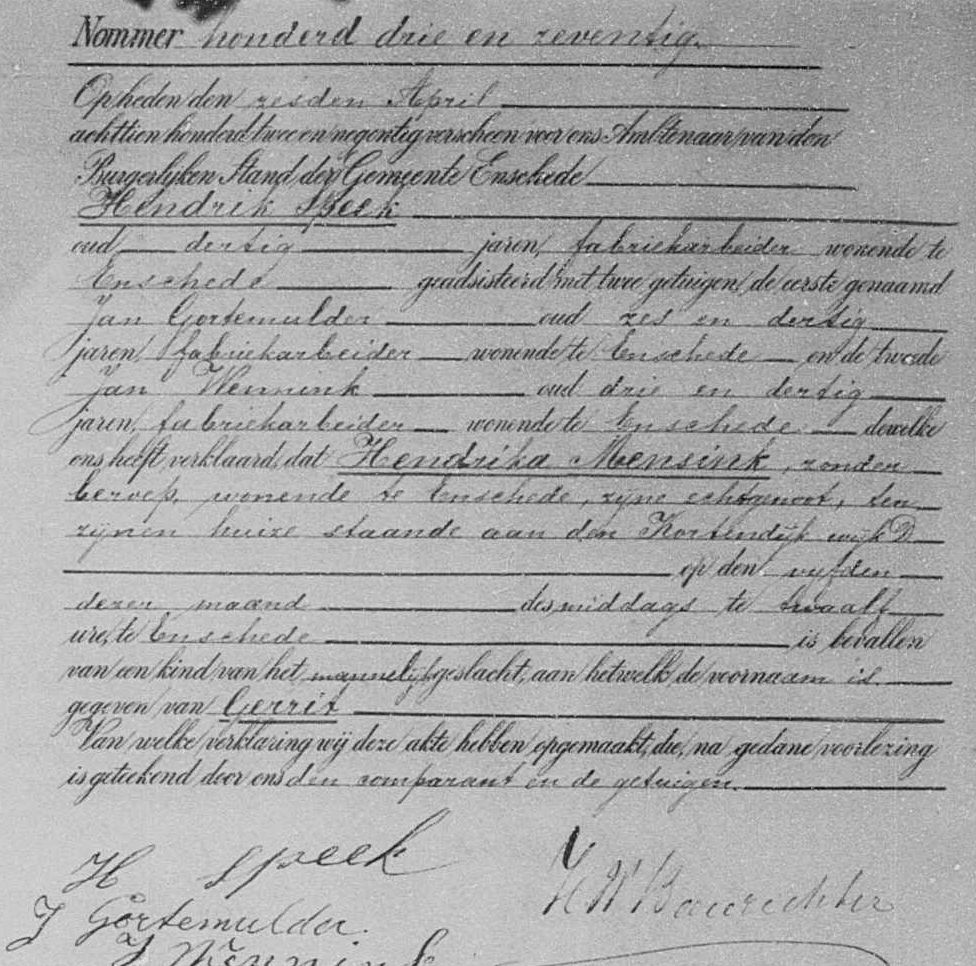 Nommer honderd drie en zeventig.
Op heden den zesden April
achttien honderd twee en negentig verscheen voor ons Ambtenaar van den
Burgerlijken Stand der Gemeente Enschede
Hendrik Speek
oud dertig jaren, fabriekarbeider wonende te
Enschede geadsisteerd met twee getuigen, de eerste genaamd
Jan Gortemulder oud zes en dertig
jaren, fabriekarbeider wonende te Enschede en de tweede
Jan Wennink oud drie en dertig
jaren, fabriekarbeider wonende te Enschede dewelke
ons heeft verklaard, dat Hendrika Mensink, zonder
beroep, wonende te Enschede, zijne echtgenoot, ten
zijnen huize staande aan den Kortendijk wijk D
op den vijfden
dezer maand des middags te twaalf
ure, te Enschede is bevallen
van een kind van het mannelijk geslacht, aan hetwelk de voornaam is
gegeven van Gerrit
Van welke verklaring wij deze akte hebben opgemaakt, die, na gedane voorlezing
is geteekend door ons den comparant en de getuigen.
H Speek
J Gortemulder.
J Wennink